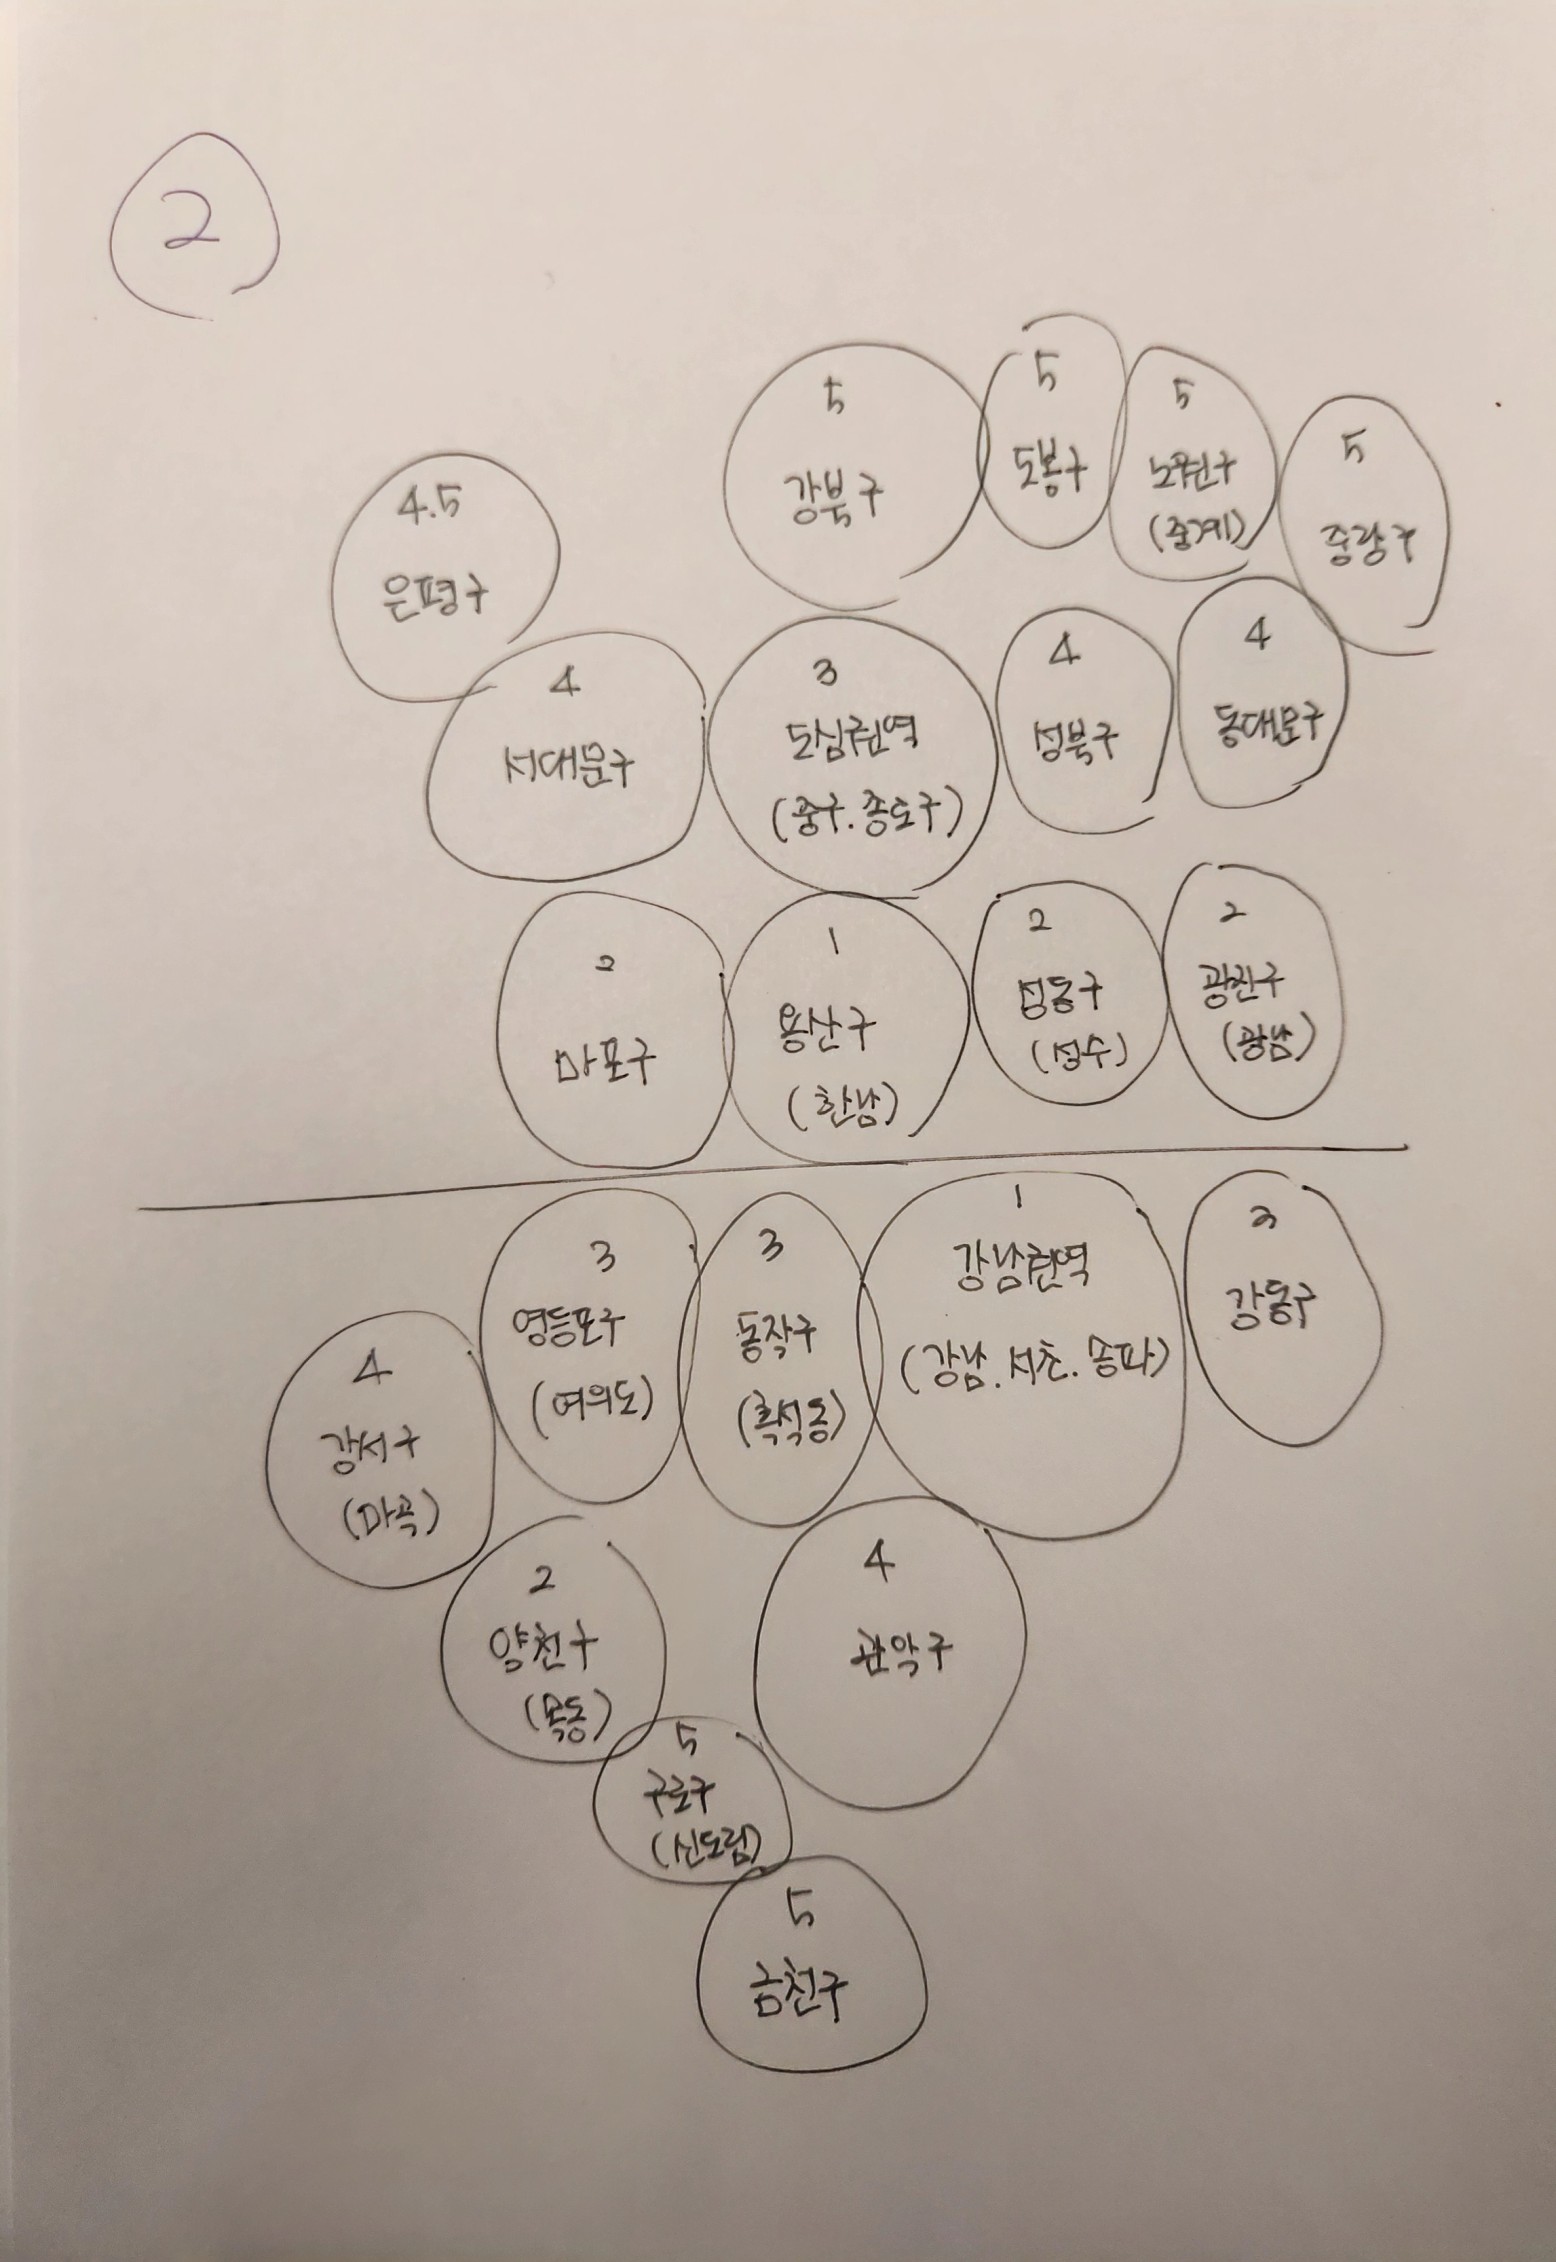 2
5
강북구
5
도봉구
5
노원구
(중계)
5
중랑구
4.5
은평구
4
서대문구
3
도심권역
(중구.종로구)
4
성북구
4
동대문구
2
마포구
1
용산구
(한남)
2
성동구
(성수)
2
광진구
(광남)
3
영등포구
(여의도)
3
동작구
(흑석동)
1
강남권역
(강남.서초.송파)
강동구
4
강서구
(마곡)
2
양천구
(목동)
4
관악구
5
구로구
(신도림)
5
금천구